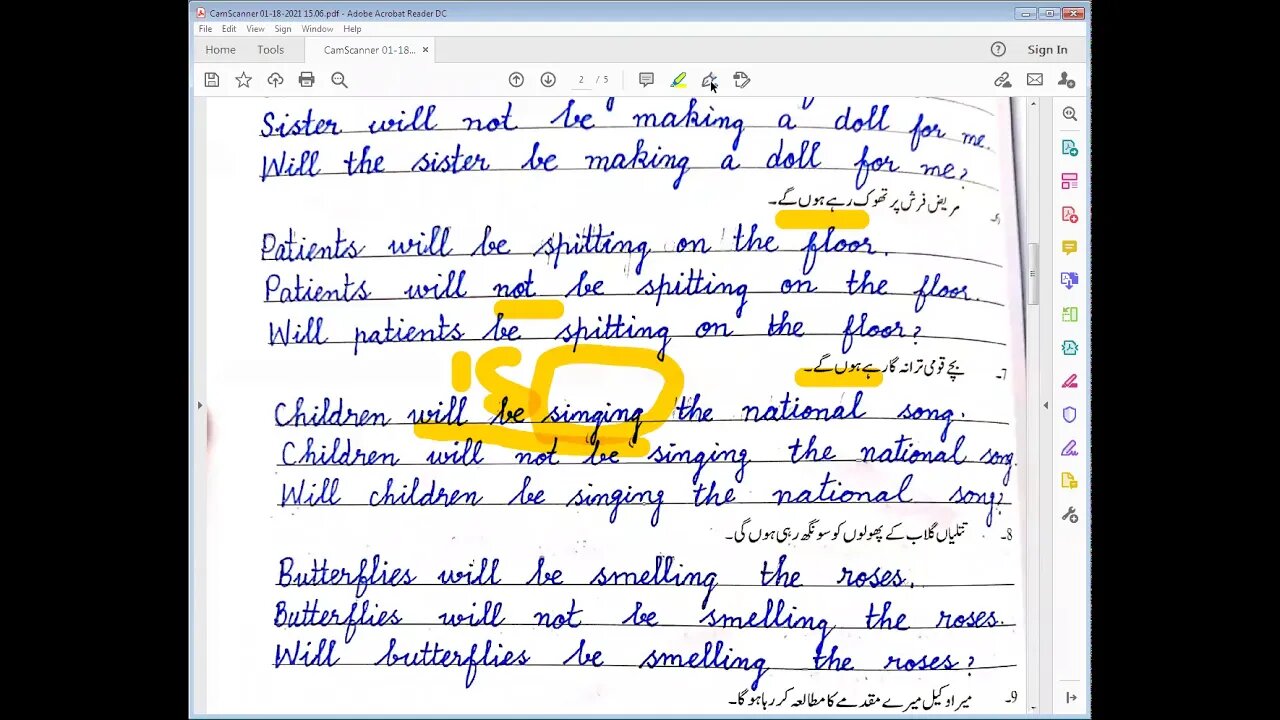 CamScanner 01-18-2021 15.06.pdf - Adobe Acrobat Reader DC
File Edit View Sign Window Help
Home Tools CamScanner 01-18... × Sign In
2 / 5
Sister will not be making a doll for me.
Will the sister be making a doll for me?
مریض فرش پر تھوک رہے ہوں گے۔
Patients will be spitting on the floor.
Patients will not be spitting on the floor.
Will patients be spitting on the floor?
7- بچے قومی ترانہ گا رہے ہوں گے۔
Children will be singing the national song.
Children will not be singing the national song.
Will children be singing the national song?
8- تتلیاں گلاب کے پھولوں کو سونگھ رہی ہوں گی۔
Butterflies will be smelling the roses.
Butterflies will not be smelling the roses.
Will butterflies be smelling the roses?
9- میرا وکیل میرے مقدمے کا مطالعہ کر رہا ہو گا۔